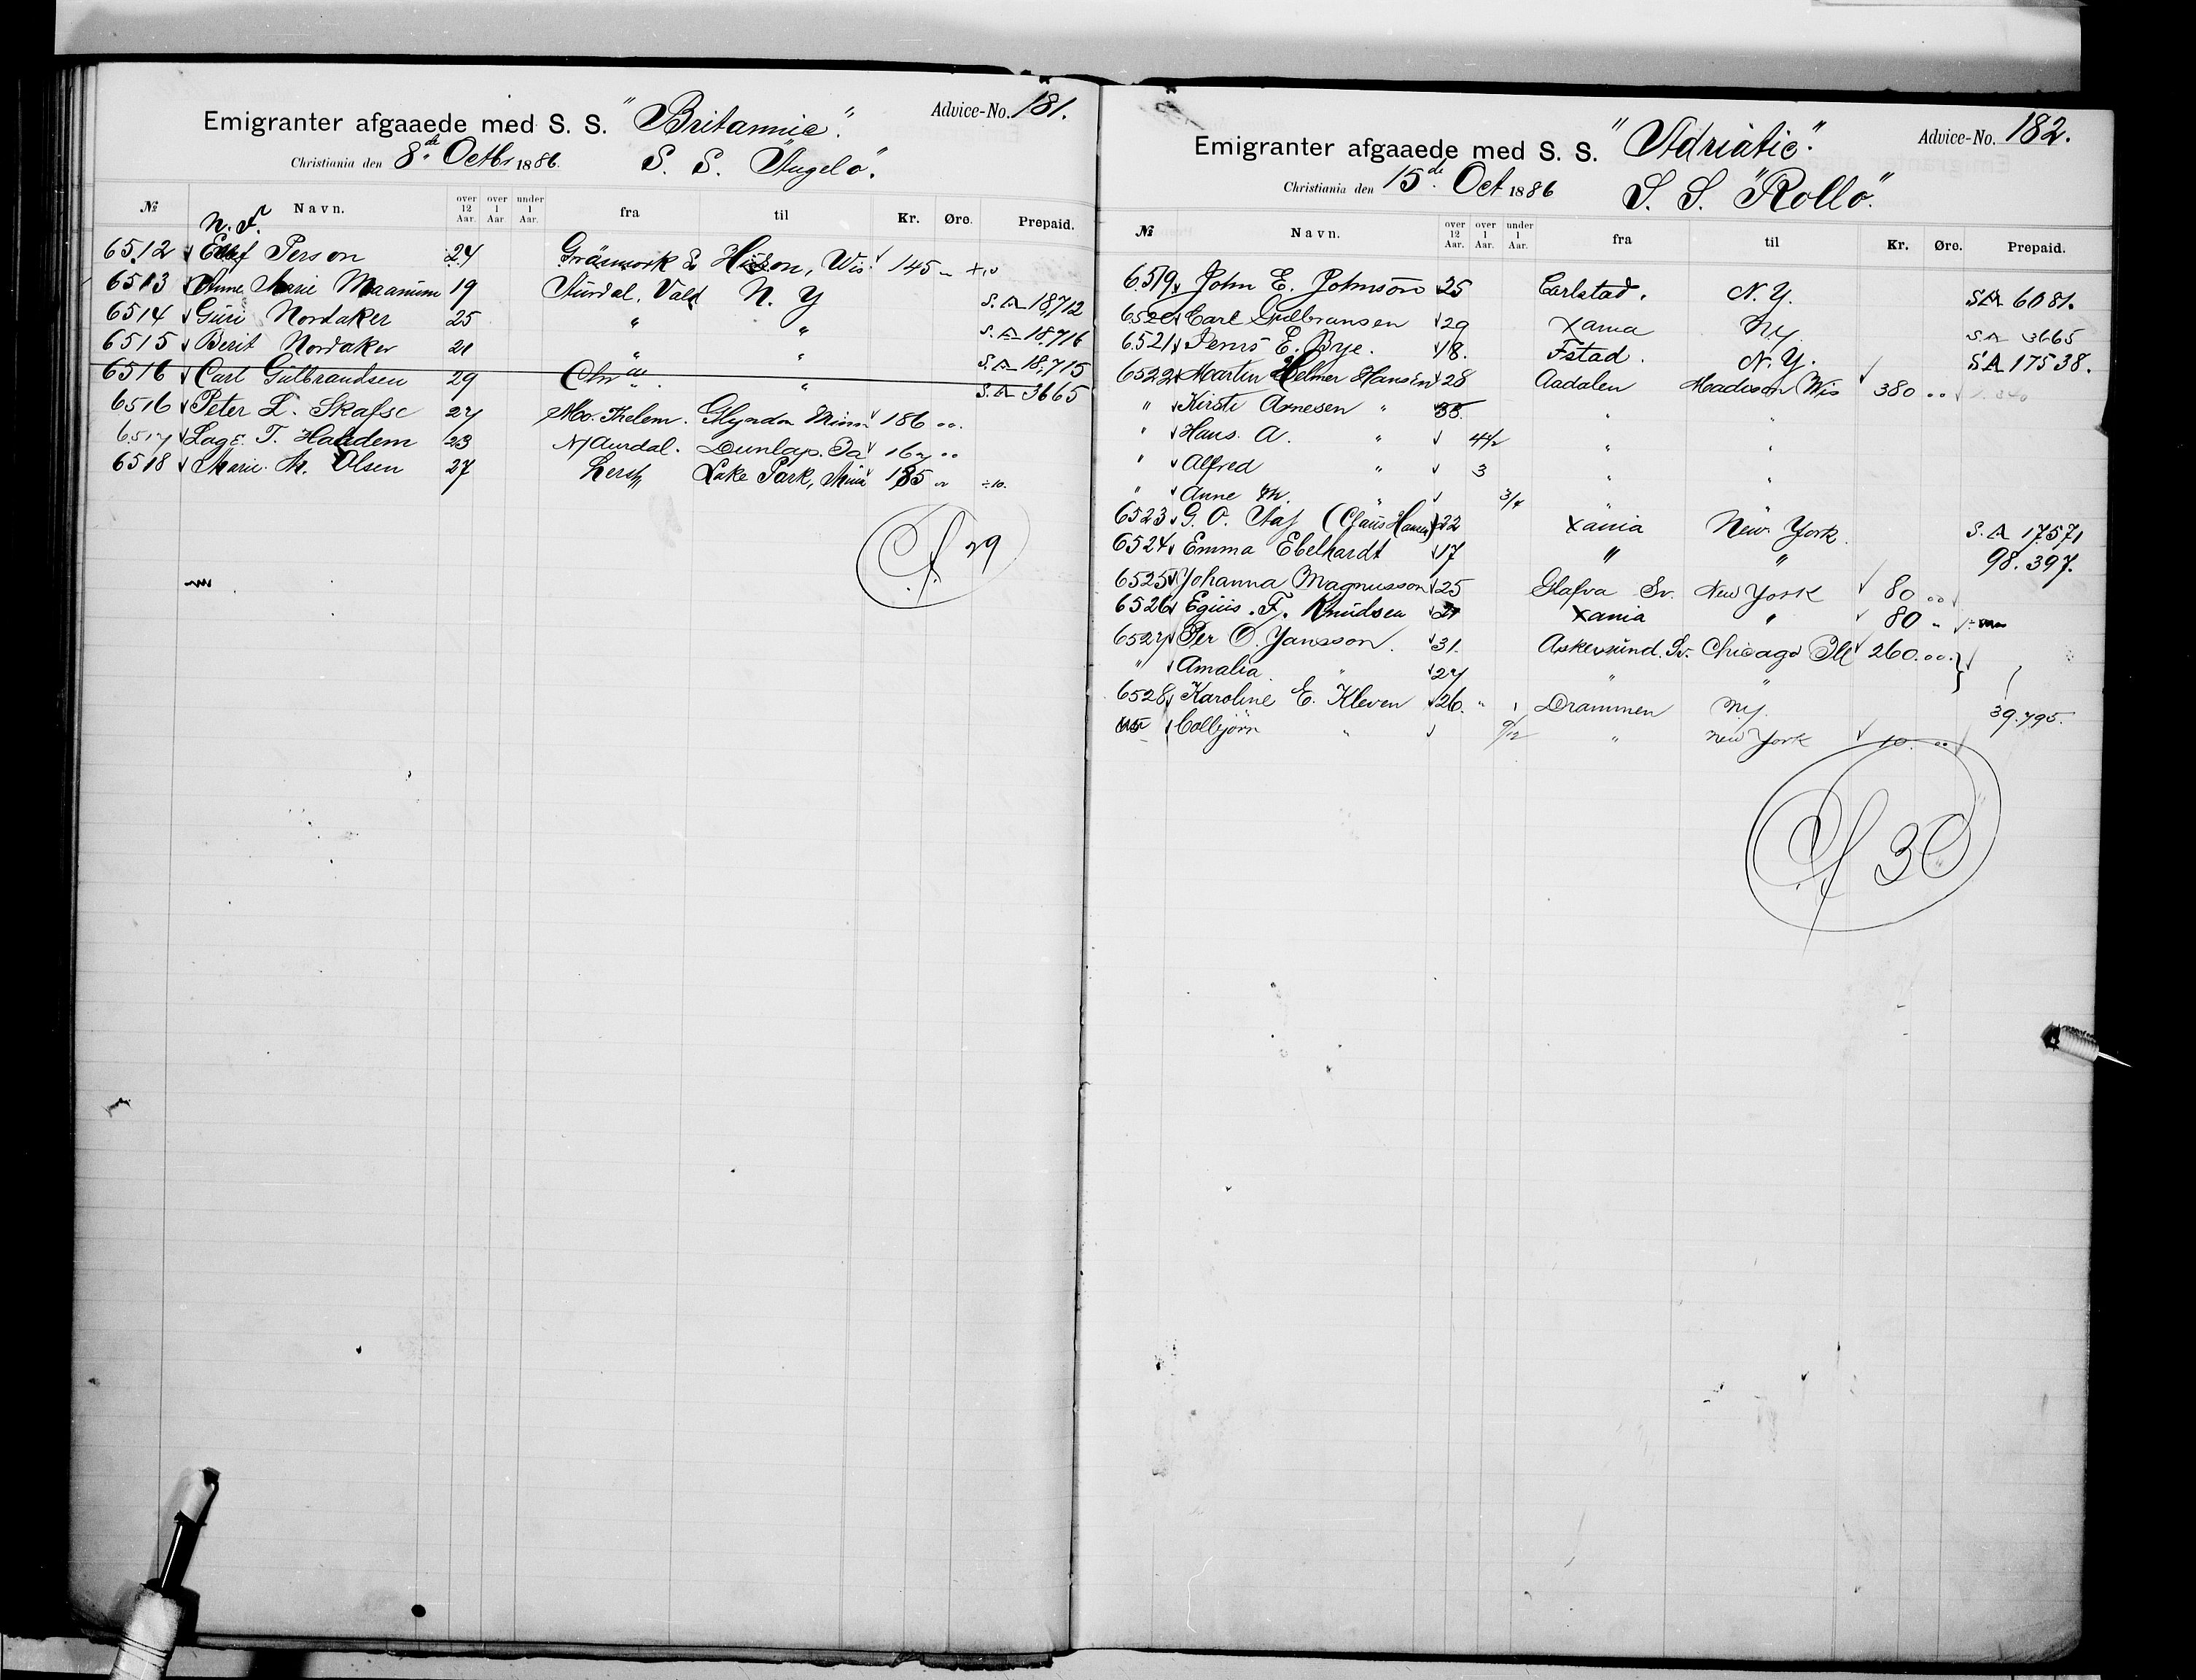 Emigranter afgaaede med S. S. "Britannic". Advice-No. 181.
Christiania den 8de Octbr 1886. S. S. "Angelo".
№ Navn. over 12 Aar. over 1 Aar under 1 Aar. fra til Kr. Øre. Prepaid.
N. F.
6512 Person 24 Hudson, Wis. 145 –
6513 Anne Marie Maanum 19 Aurdal, Vald N. Y S.A 18,712
6514 Guri Nordaker 25 " " S.A 18,716
6515 Berit Nordaker 21 " " S.A 18,715
6516 Carl Gulbrandsen 29 Chr " S.A 3665
6516 Peter L. Skafse 27 Mo. Thelem. Glyndon Minn 186 ..
6517 T. Haadem 23 N/Aurdal. Dunlap. 167 ..
6518 Marie M. Olsen 27 Lake Park, Minn 185 ÷10.
29
Emigranter afgaaede med S. S. "Adriatic". Advice-No. 182.
Christiania den 15de Oct 1886 S. S. "Rollo".
№ Navn. over 12 Aar. over 1 Aar. under 1 Aar. fra til Kr. Øre. Prepaid.
6519 John E. Johnson 25 Carlstad. N. Y. SA 6081.
6520 Carl Gulbransen 29 Xania NY S.A 3665
6521 E. Bye. 18. Fstad. N. Y. SA 17538.
6522 Martin Helmer Hansen 28 Aadalen Madison Wis 380 ..
" Kirsti Arnesen " 33. " "
" Hans. A. " 4½ " "
" Alfred " 3 " "
" Anne M. " 3/4
6523 G. O. (Claus Hansen) 22 Xania New York S.A 17571
6524 Emma Ebelhardt 17 " " 98.397.
6525 Johanna Magnusson 25 Glafva Sv. New York 80 ..
6526 F. Knudsen Xania " 80 "
6527 Per O. Jansson. 31. Askersund. Sv. Chicago Ill 260. ..
" Amalia " 27 " "
6528 Karoline E. Kleven 26. " 1 Drammen NY. 39.795.
Colbjörn " 9/12 " New York 10. ..
30